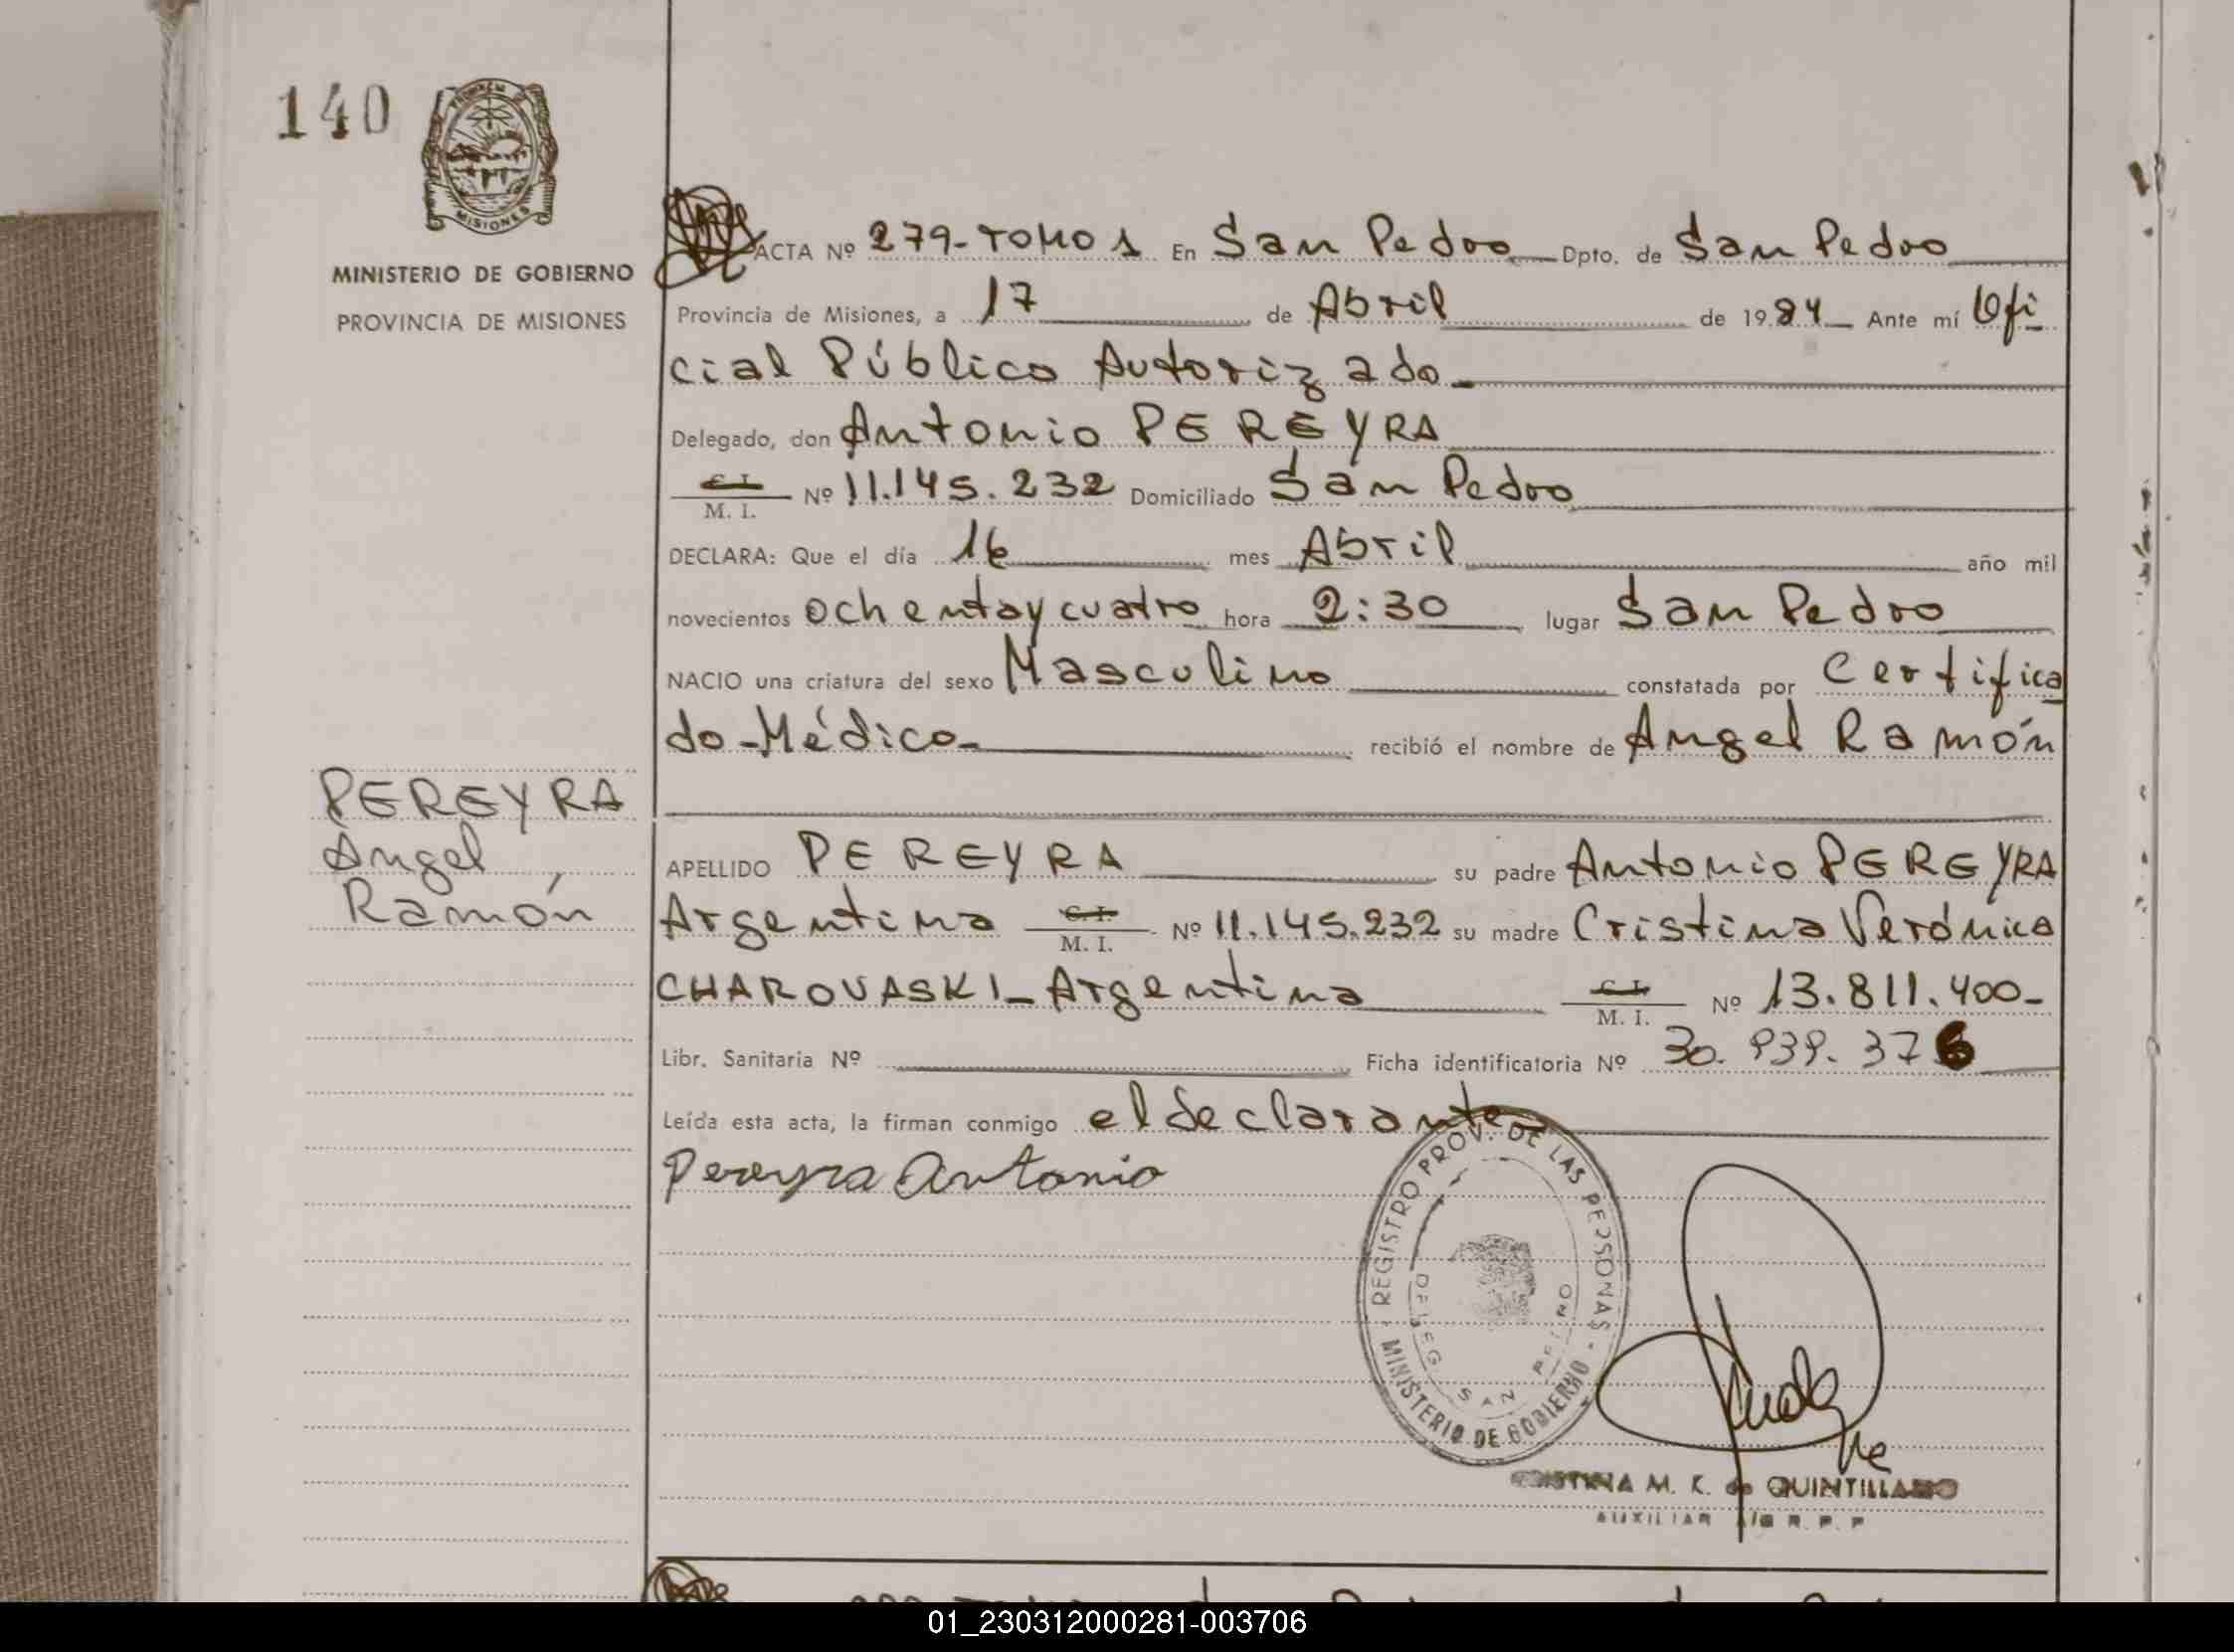 140
PROVINCIA
MISIONES
MINISTERIO DE GOBIERNO
PROVINCIA DE MISIONES
PEREYRA
Ángel
Ramón
ACTA Nº 279-TOMO 1 En San Pedro Dpto. de San Pedro
Provincia de Misiones, a 17 de Abril de 1984 Ante mí Ofi
cial Público Autorizado
Delegado, don Antonio PEREYRA
C. I.
M. I. Nº 11.145.232 Domiciliado San Pedro
DECLARA: Que el día 16 mes Abril año mil
novecientos ochenta y cuatro hora 2:30 lugar San Pedro
NACIO una criatura del sexo Masculino constatada por Certifica
do-Médico- recibió el nombre de Angel Ramón
APELLIDO PEREYRA su padre Antonio PEREYRA
Argentina C. I. M. I. Nº 11.145.232 su madre Cristina Verónica
CHAROVASKI-Argentina C. I. M. I. Nº 13.811.400-
Libr. Sanitaria Nº Ficha identificatoria Nº 30.939.376
Leída esta acta, la firman conmigo el declarante
Pereyra Antonio
REGISTRO PROV. DE LAS PERSONAS - MINISTERIO DE GOBIERNO -
DELEG. SAN PEDRO
CRISTINA M. K. de QUINTILLANO
AUXILIAR R. P. P
01_230312000281-003706